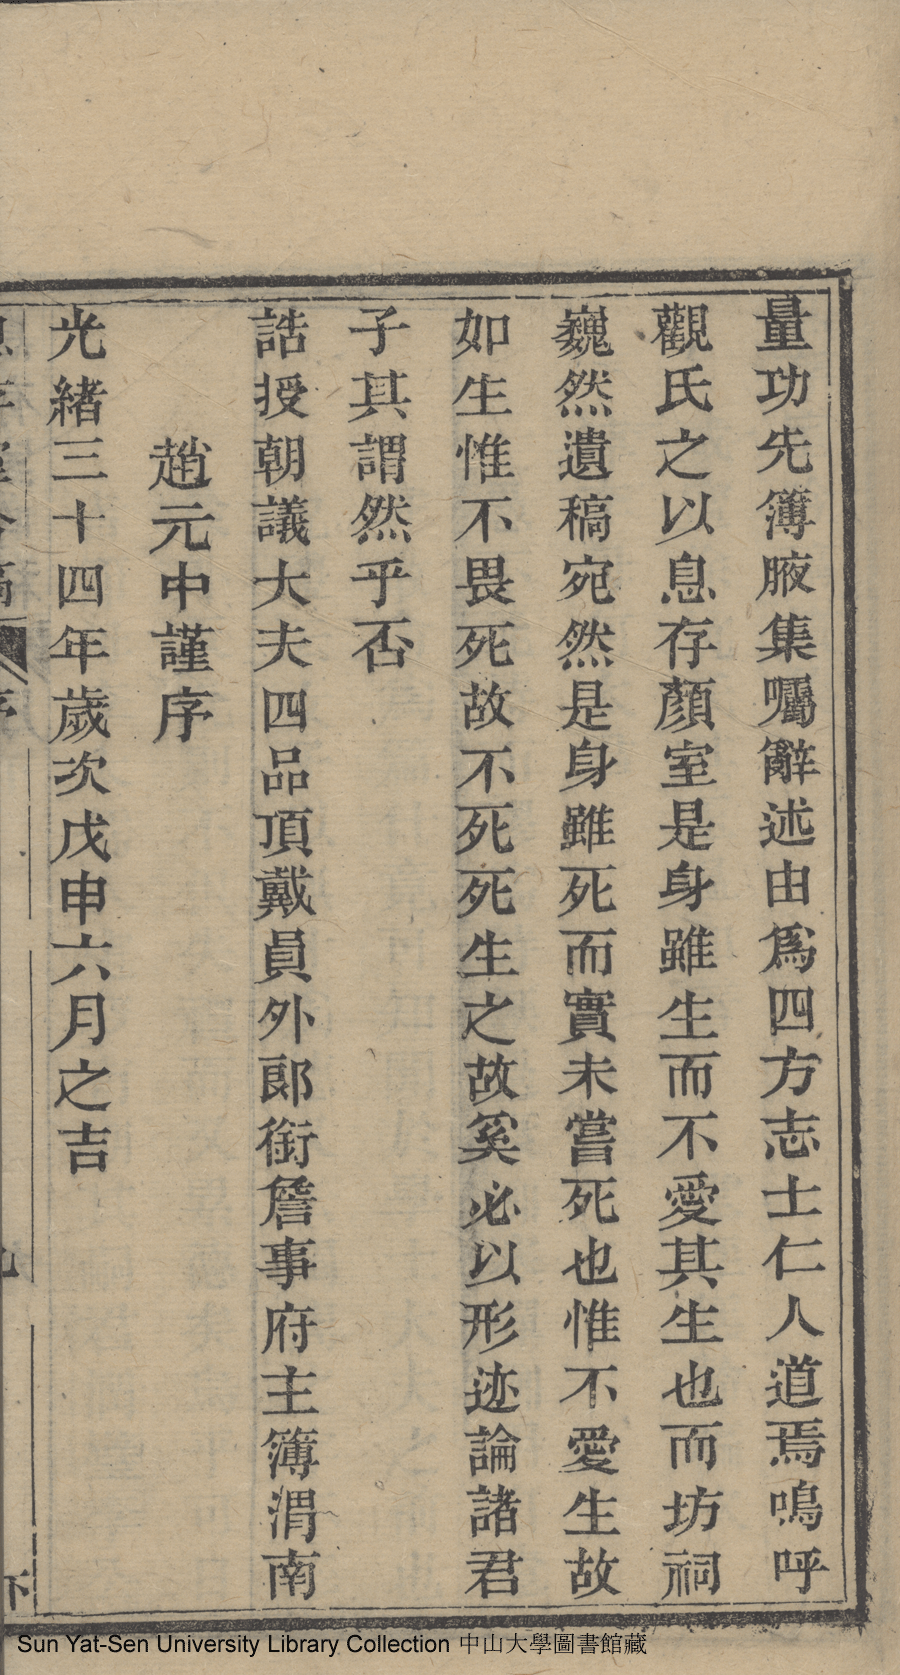 量功先簿腋集囑辭述由爲四方志士仁人道焉嗚呼
觀氏之以息存顏室是身雖生而不愛其生也而坊祠
巍然遺稿宛然是身雖死而實未嘗死也惟不愛生故
如生惟不畏死故不死死生之故奚必以形迹論諸君
子其謂然乎否
誥授朝議大夫四品頂戴員外郎銜詹事府主簿渭南
趙元中謹序
光緒三十四年歲次戊申六月之吉
序
Sun Yat-Sen University Library Collection 中山大學圖書館藏